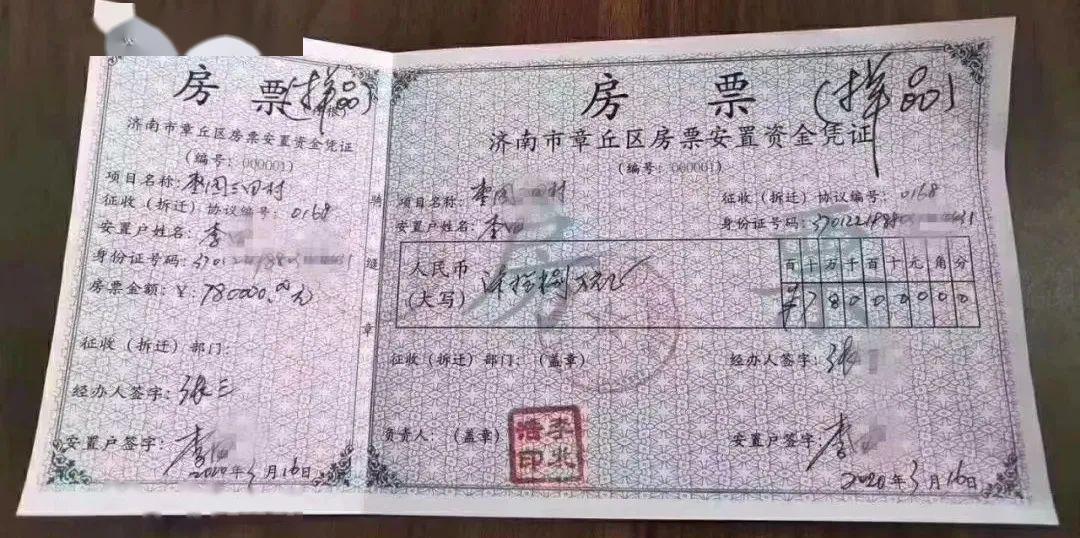 房 票(样品)
济南市章丘区房票安置资金凭证
(编号:000001)
项目名称:
征收(拆迁)协议编号:0168
安置户姓名:李
身份证号码:
房票金额:¥:780000.00元
征收(拆迁)部门:
经办人签字:张三
安置户签字:李
2020年3月16日
骑缝章
房 票(样品)
济南市章丘区房票安置资金凭证
(编号:000001)
项目名称:
征收(拆迁)协议编号:0168
安置户姓名:李
身份证号码:
人民币
(大写)
柒拾捌万元
百 十 万 千 百 十 元 角 分
¥ 7 8 0 0 0 0 0 0
房票
征收(拆迁)部门:(盖章)
经办人签字:张
负责人:(盖章)
李兆浩印
安置户签字:李
2020年3月16日